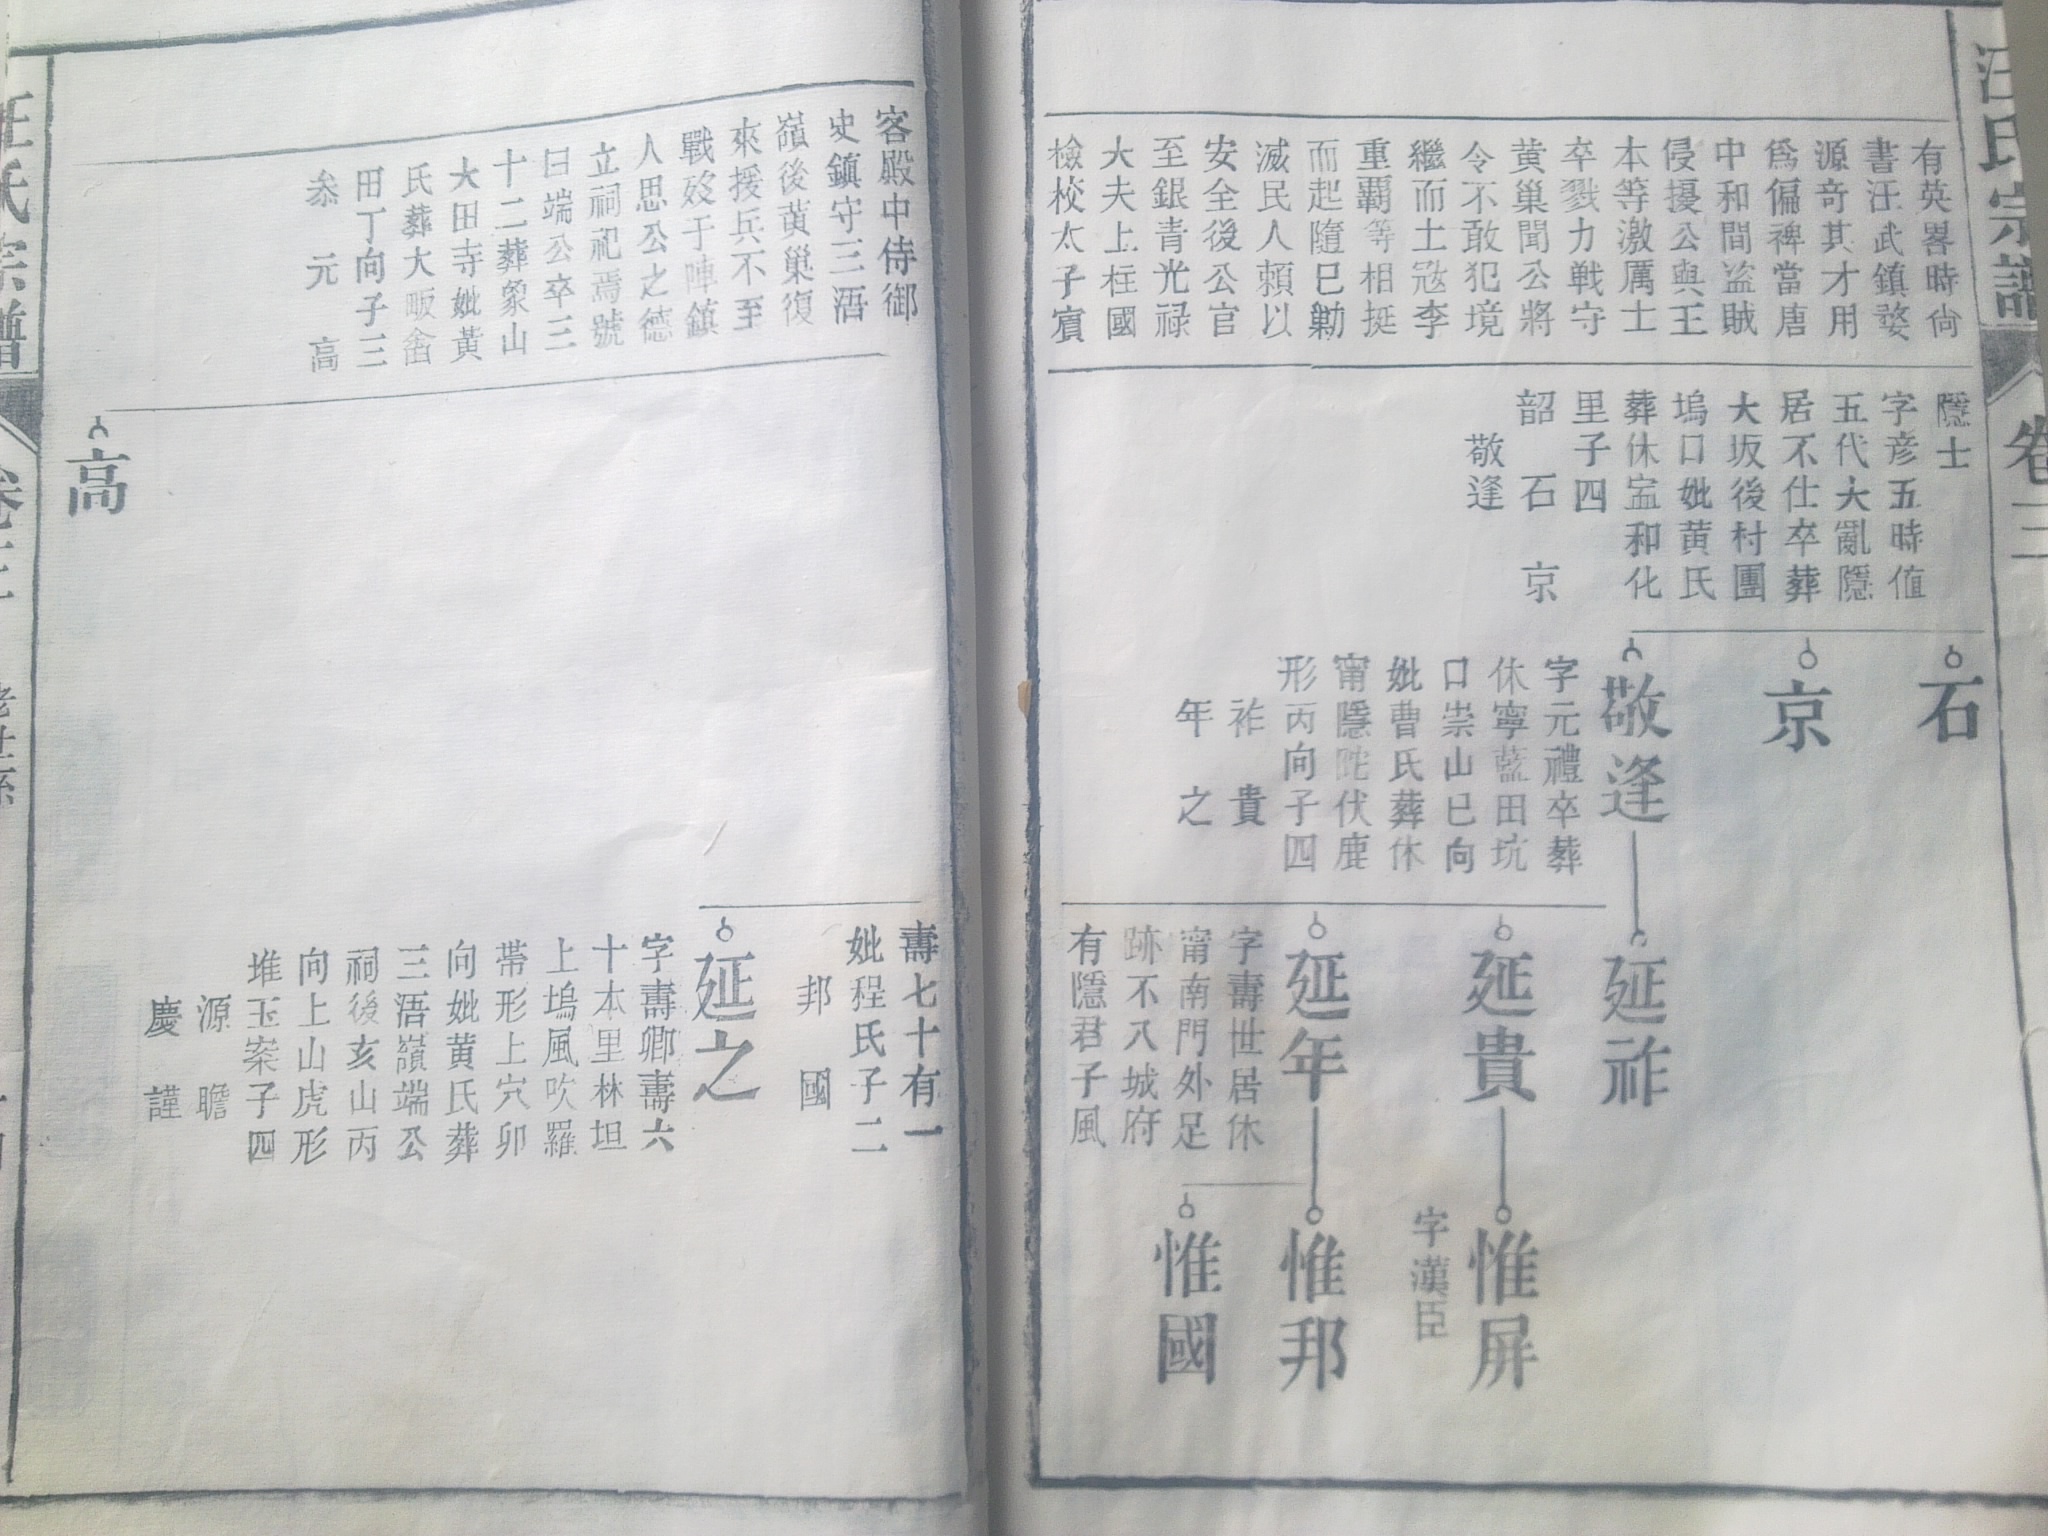 汪氏宗譜
卷三
有英畧時尙
書汪武鎮婺
源奇其才用
爲偏裨當唐
中和間盗賊
侵擾公與王
本等激厲士
卒戮力戰守
黄巢聞公將
令不敢犯境
繼而土冦李
重覇等相挺
而起隨巳勦
滅民人頼以
安全後公官
至銀青光禄
大夫上柱國
檢校太子賔
客殿中侍御
史鎮守三浯
嶺後黄巢復
來援兵不至
戰歿于陣鎮
人思公之德
立祠祀焉號
曰端公卒三
十二葬象山
大田寺妣黄
氏葬大畈畲
田丁向子三
叅 元 高
隱士
字彦五時值
五代大亂隱
居不仕卒葬
大坂後村團
塢口妣黄氏
葬休寍和化
里子四
韶 石 京
敬逢
石
京
敬逢
字元禮卒葬
休寧藍田坑
口崇山巳向
妣曹氏葬休
甯隱陀伏鹿
形丙向子四
祚 貴
年 之
高
延祚
延貴
惟屏
字漢臣
延年
字壽世居休
甯南門外足
跡不入城府
有隱君子風
壽七十有一
妣程氏子二
邦 國
惟邦
惟國
延之
字壽卿壽六
十本里林坦
上塢風吹羅
帶形上穴卯
向妣黄氏葬
三浯嶺端公
祠後亥山丙
向上山虎形
堆玉案子四
源 瞻
慶 謹
汪氏宗譜